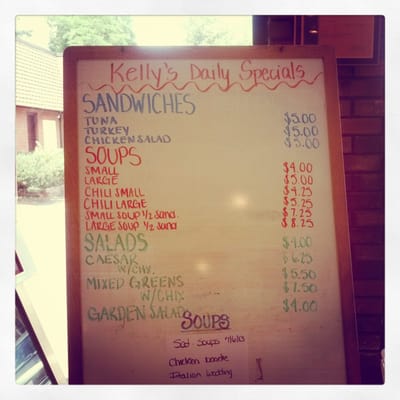 Kelly's Daily Specials
SANDWICHES
TUNA $5.00
TURKEY $5.00
CHICKEN SALAD $5.00
SOUPS
SMALL $4.00
LARGE $5.00
CHILI SMALL $4.25
CHILI LARGE $5.25
SMALL SOUP 1/2 Sand. $7.25
LARGE SOUP 1/2 Sand $8.25
SALADS $4.00
CAESAR $6.25
W/CHX. $5.50
MIXED GREENS $7.50
W/CHIX
GARDEN SALAD $4.00
SOUPS
Sat Soups 7/6/13
Chicken noodle
Italian wedding